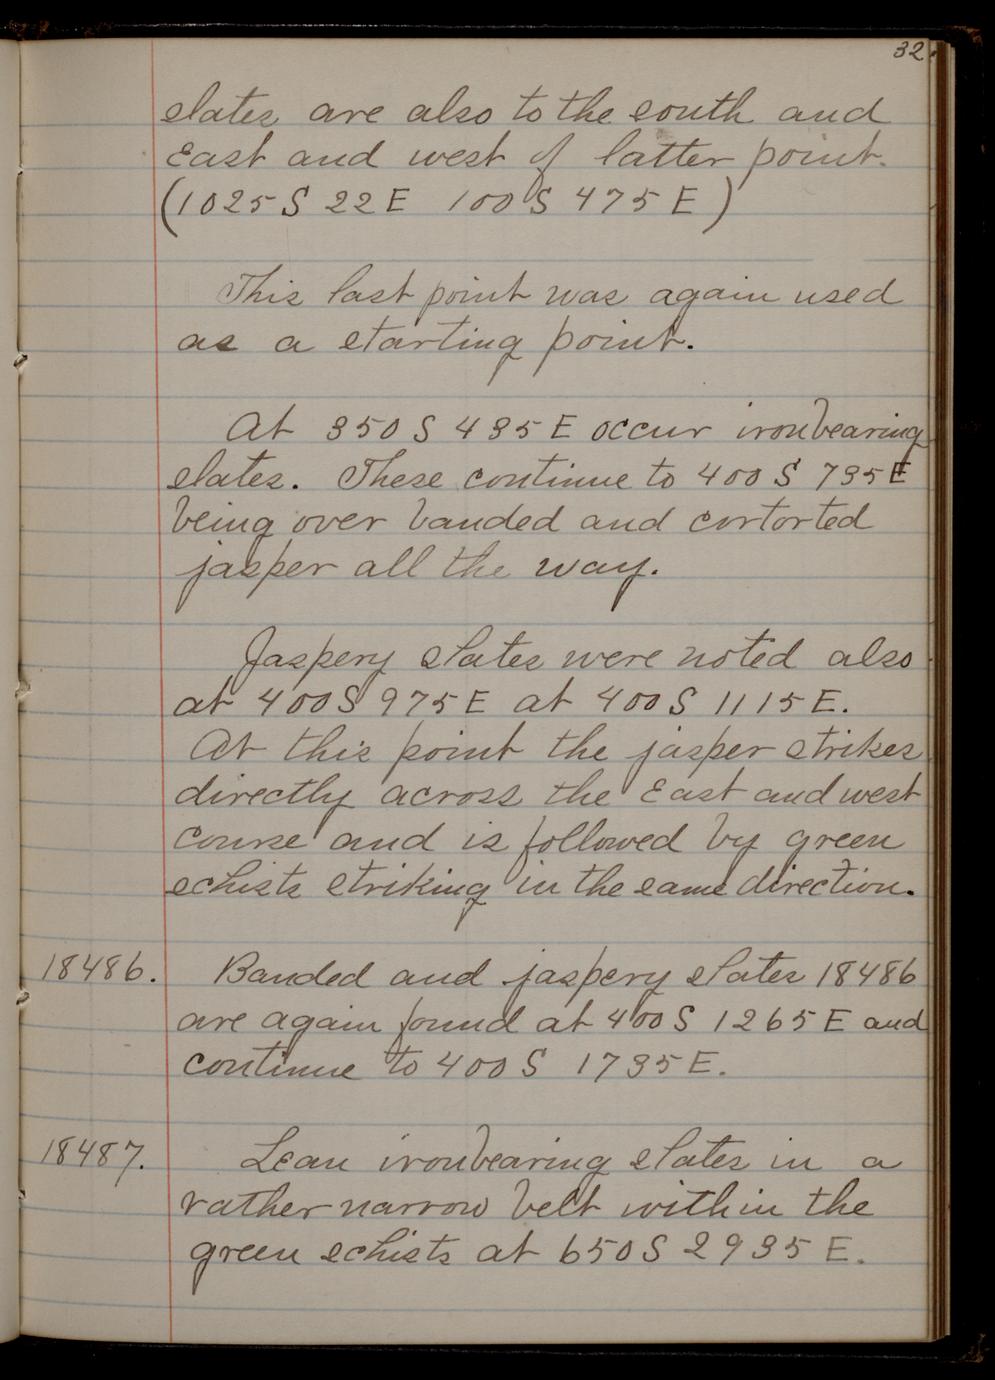 32.
slates are also to the south and
East and west of latter point.
(1025 S 22 E 100 S 475 E)
This last point was again used
as a starting point.
At 350 S 435 E occur ironbearing
slates. These continue to 400 S 735 E
being over banded and cortorted
jasper all the way.
Jaspery slates were noted also
at 400 S 975 E at 400 S 1115 E.
At this point the jasper strikes
directly across the East and west
course and is followed by green
schists striking in the same direction.
18486. Banded and jaspery slates 18486
are again found at 400 S 1265 E and
continue to 400 S 1735 E.
18487. Lean ironbearing slates in a
rather narrow belt within the
green schists at 650 S 2935 E.